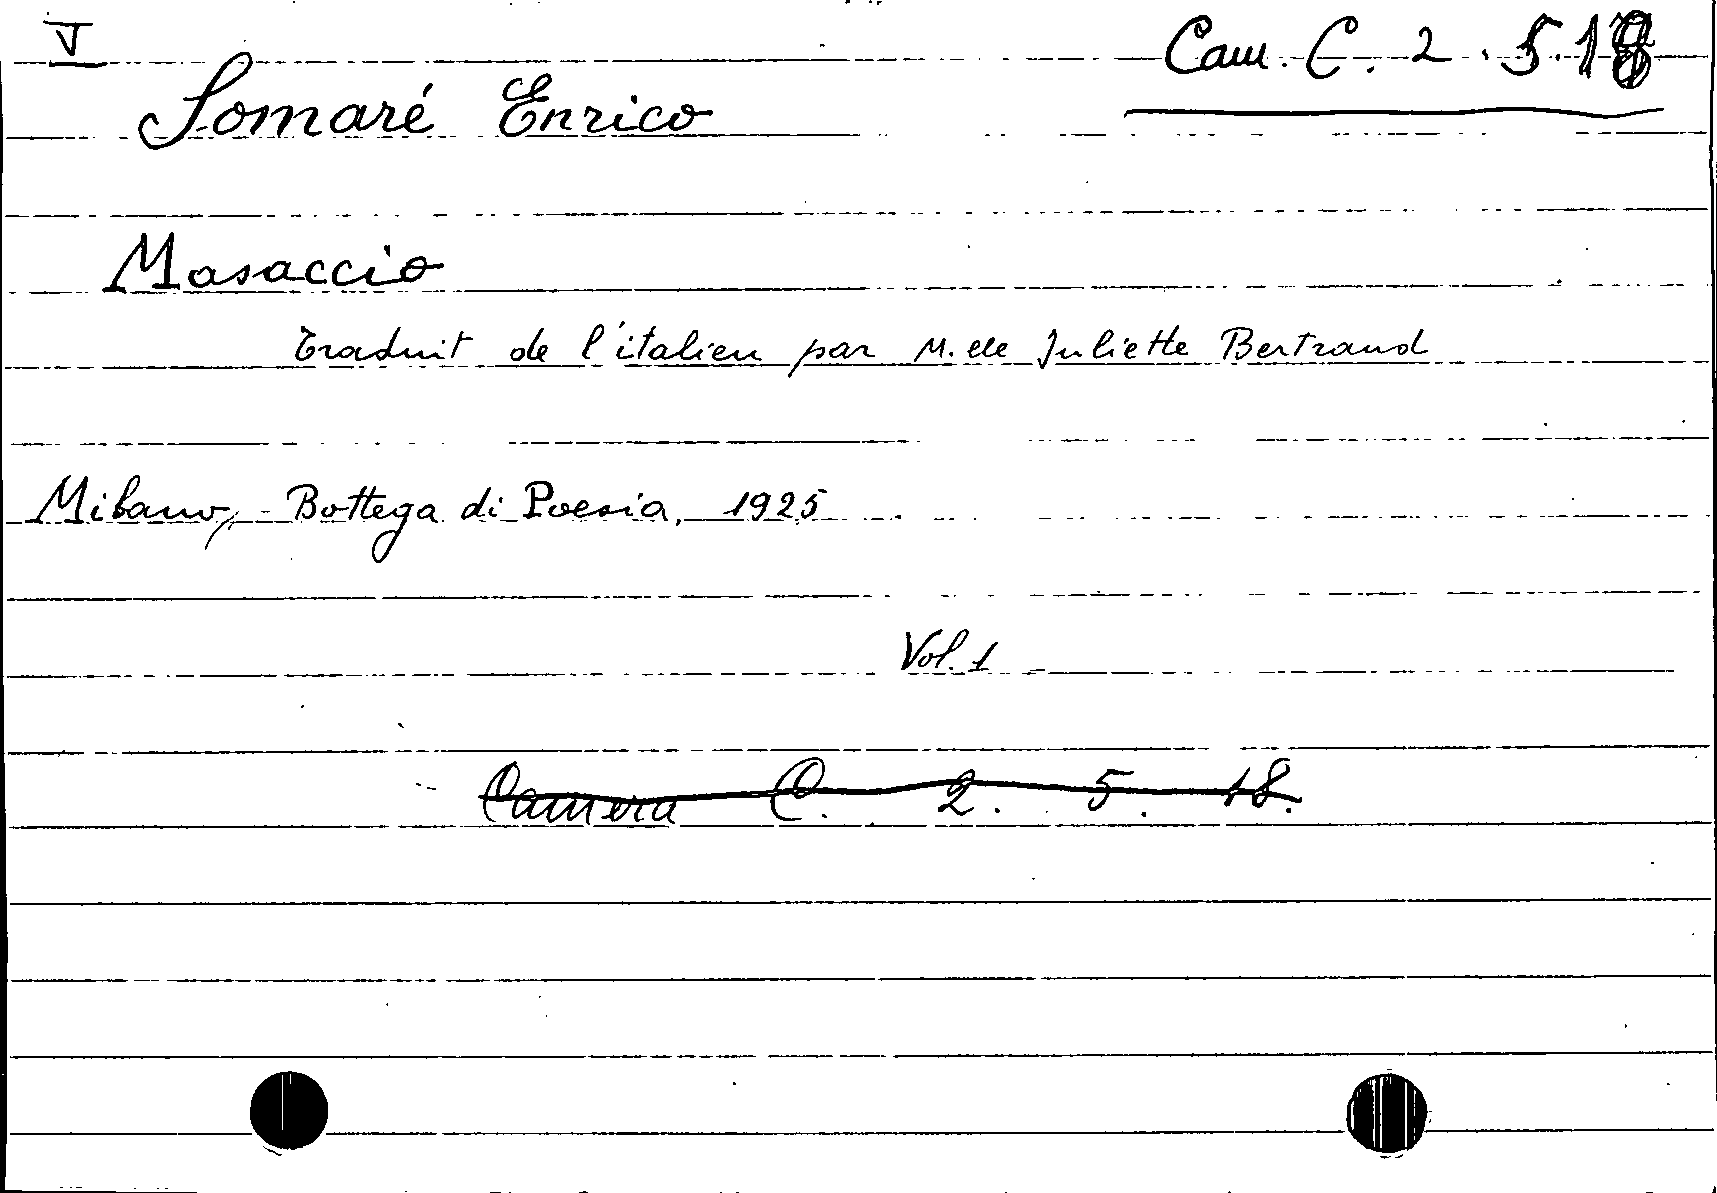 V
Cam. C. 2. 5. 18
Somaré Enrico
Masaccio
Traduit de l'italien par M.elle Juliette Bertrand
Milano, Bottega di Poesia, 1925
Vol. 1
Camera C. 2. 5. 18.